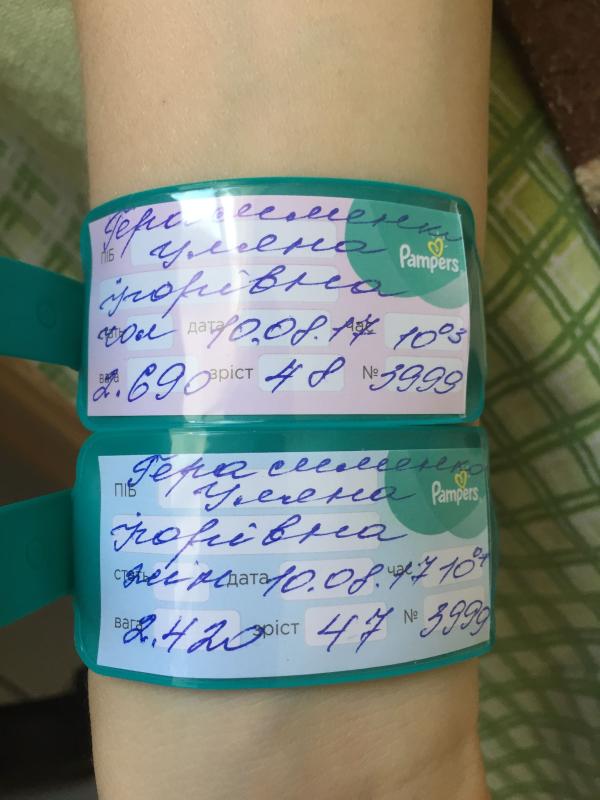 Герасименко
ПІБ Уляна
Pampers
Ігорівна
чол дата 10.08.17 час 10 03
вага 2.690 зріст 48 № 3999
Герасименко
ПІБ Уляна
Pampers
Ігорівна
стать жін дата 10.08.17 час 10 04
вага 2.420 зріст 47 № 3999